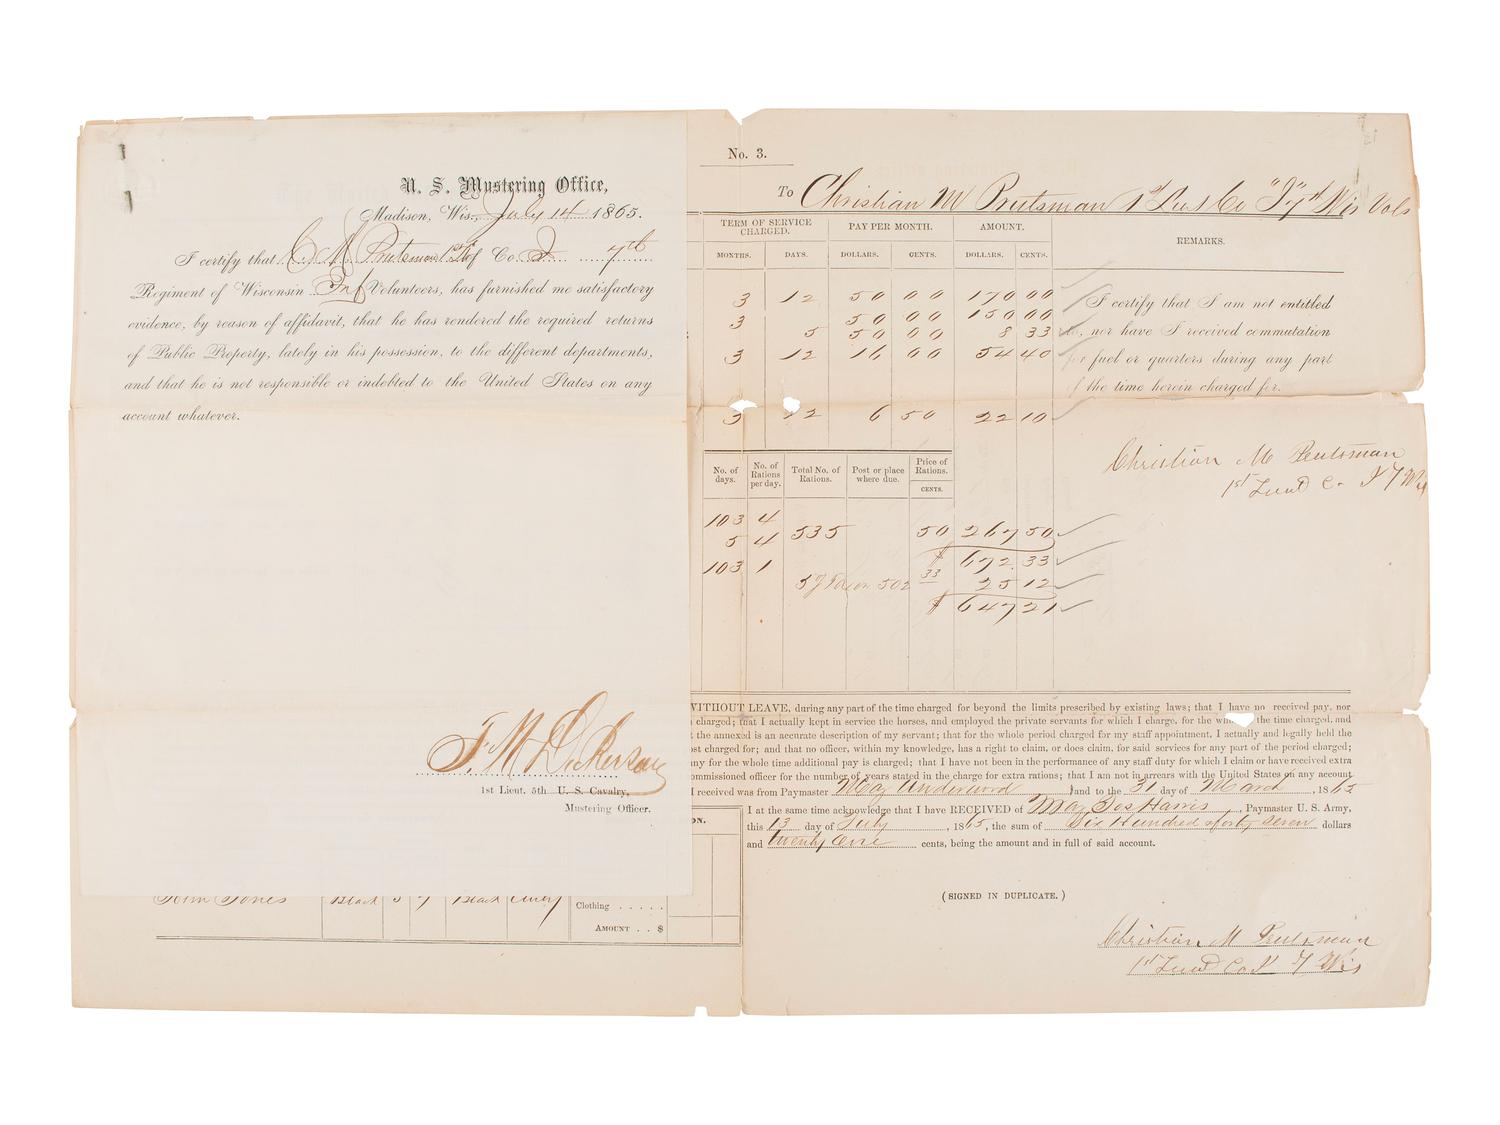 U. S. Mustering Office,
Madison, Wis., July 14 1865.
I certify that C M Prutsman 1st Lt of Co. I 7th
Regiment of Wisconsin Inf Volunteers, has furnished me satisfactory
evidence, by reason of affidavit, that he has rendered the required returns
of Public Property, lately in his possession, to the different departments,
and that he is not responsible or indebted to the United States on any
account whatever.
F. M Dickerson
1st Lieut. 5th U. S. Cavalry,
Mustering Officer.
John Jones Black 5 7 Black
Clothing . . . . .
AMOUNT . . $
ON.
No. 3.
To Christian M Prutsman 1st Lieut Co "I" 7th Wis Vols
TERM OF SERVICE CHARGED. PAY PER MONTH. AMOUNT. REMARKS.
MONTHS. DAYS. DOLLARS. CENTS. DOLLARS. CENTS.
3 12 50 00 170 00
3 50 00 150 00
5 50 00 8 33
3 12 16 00 54 40
3 12 6 50 22 10
I certify that I am not entitled
to, nor have I received commutation
for fuel or quarters during any part
of the time herein charged for.
Christian M Prutsman
1st Lieut Co I 7 Wis
No. of days. No. of Rations per day. Total No. of Rations. Post or place where due. Price of Rations.
CENTS.
103 4
5 4 535 50 267 50
$ 672 33
103 1
502 33 25 12
$ 647 21
WITHOUT LEAVE, during any part of the time charged for beyond the limits prescribed by existing laws; that I have no received pay, nor
charged; that I actually kept in service the horses, and employed the private servants for which I charge, for the the time charged, and
the annexed is an accurate description of my servant; that for the whole period charged for my staff appointment, I actually and legally held the
charged for; and that no officer, within my knowledge, has a right to claim, or does claim, for said services for any part of the period charged;
for the whole time additional pay is charged; that I have not been in the performance of any staff duty for which I claim or have received extra
commissioned officer for the number of years stated in the charge for extra rations; that I am not in arrears with the United States on any account
I received was from Paymaster Maj Underwood and to the 31 day of March, 1865
I at the same time acknowledge that I have RECEIVED of Maj Jos Harris, Paymaster U. S. Army,
this 13 day of July, 1865, the sum of Six Hundred & forty seven dollars
and twenty One cents, being the amount and in full of said account.
(SIGNED IN DUPLICATE.)
Christian M Prutsman
1st Lieut Co I 7 Wis